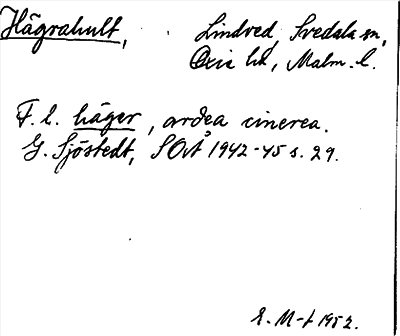 Hägrahult, Lindved, Svedala sn,
Oxie hd, Malm. l.
F. l. häger, ardea cinerea.
G. Sjöstedt, SOÅ 1942-45 s. 29.
E. M-f 1952.